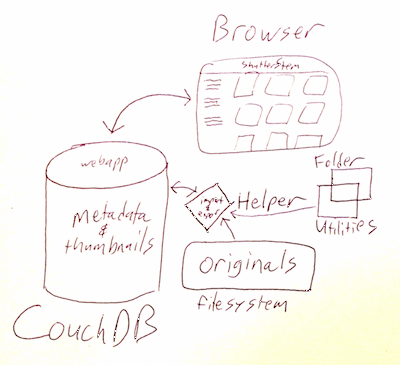 Browser
ShutterStem
webapp
Metadata
&
thumbnails
CouchDB
Helper
Folder
Utilities
Originals
filesystem